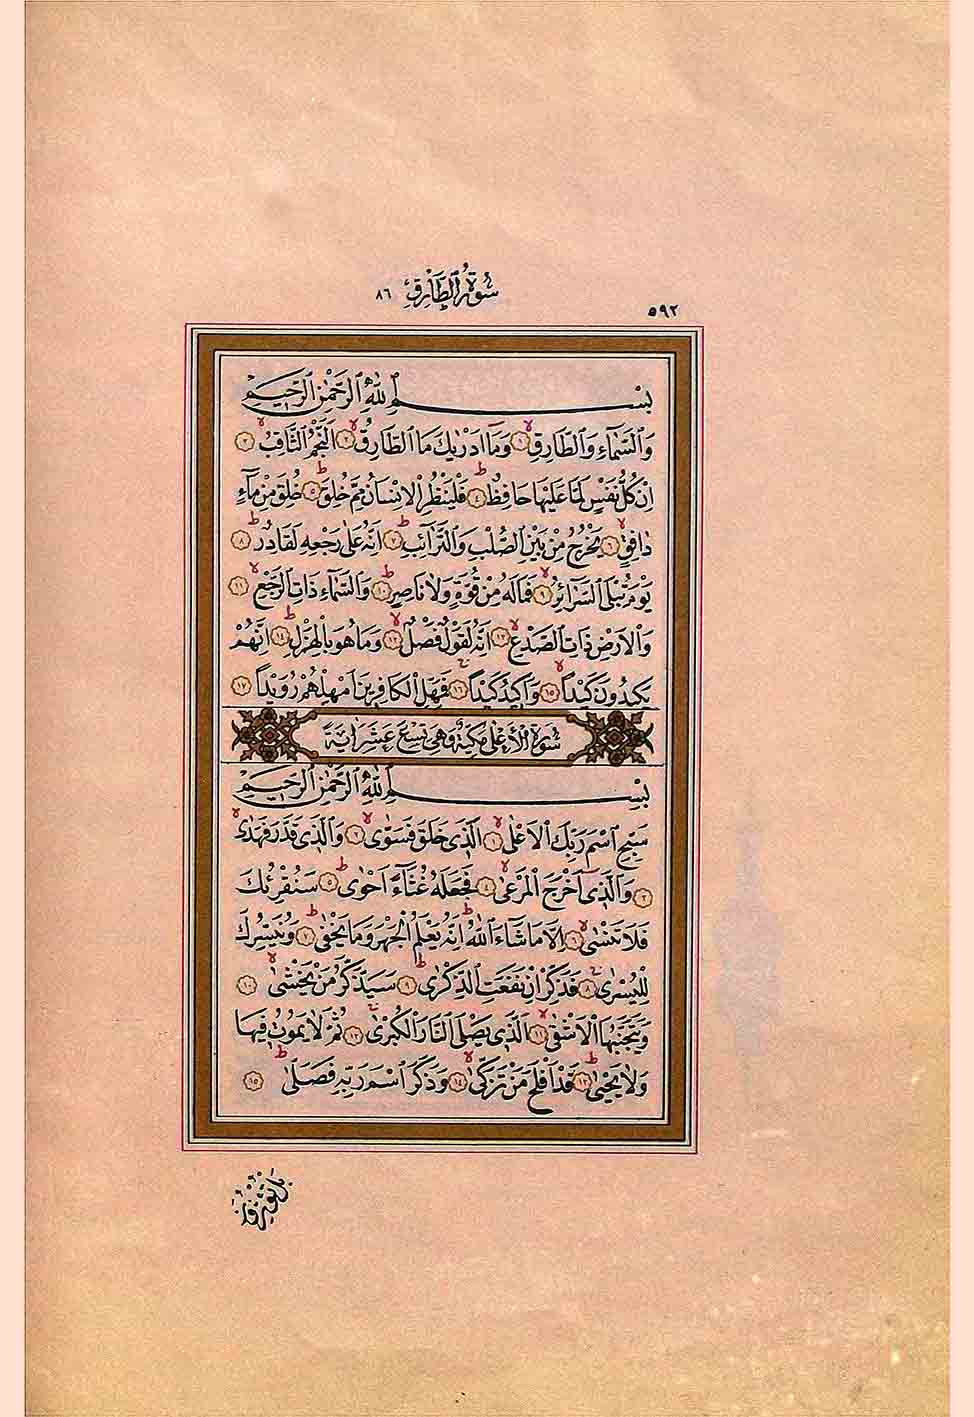 سُورَةُ الطَّارِقِ ٨٦
٥٩٢
بِسْمِ اللّٰهِ الرَّحْمٰنِ الرَّحٖيمِ
وَالسَّمَٓاءِ وَالطَّارِقِۙ ١ وَمَٓا اَدْرٰيكَ مَا الطَّارِقُۙ ٢ اَلنَّجْمُ الثَّاقِبُۙ ٣
اِنْ كُلُّ نَفْسٍ لَمَّا عَلَيْهَا حَافِظٌۜ ٤ فَلْيَنْظُرِ الْاِنْسَانُ مِمَّ خُلِقَۜ ٥ خُلِقَ مِنْ مَٓاءٍ
دَافِقٍۙ ٦ يَخْرُجُ مِنْ بَيْنِ الصُّلْبِ وَالتَّرَٓائِبِۜ ٧ اِنَّهُ عَلٰى رَجْعِهٖ لَقَادِرٌۜ ٨
يَوْمَ تُبْلَى السَّرَٓائِرُۙ ٩ فَمَا لَهُ مِنْ قُوَّةٍ وَلَا نَاصِرٍۜ ١٠ وَالسَّمَٓاءِ ذَاتِ الرَّجْعِۙ ١١
وَالْاَرْضِ ذَاتِ الصَّدْعِۙ ١٢ اِنَّهُ لَقَوْلٌ فَصْلٌۙ ١٣ وَمَا هُوَ بِالْهَزْلِۜ ١٤ اِنَّهُمْ
يَكٖيدُونَ كَيْداًۙ ١٥ وَاَكٖيدُ كَيْداًۚ ١٦ فَمَهِّلِ الْكَافِرٖينَ اَمْهِلْهُمْ رُوَيْداً ١٧
سُورَةُ الْاَعْلٰى مَكِّيَّةٌ وَهِيَ تِسْعَ عَشَرَ اٰيَةً
بِسْمِ اللّٰهِ الرَّحْمٰنِ الرَّحٖيمِ
سَبِّحِ اسْمَ رَبِّكَ الْاَعْلٰىۙ ١ اَلَّذٖي خَلَقَ فَسَوّٰىۙ ٢ وَالَّذٖي قَدَّرَ فَهَدٰىۙ
٣ وَالَّذٖٓي اَخْرَجَ الْمَرْعٰىۙ ٤ فَجَعَلَهُ غُثَٓاءً اَحْوٰىۜ ٥ سَنُقْرِئُكَ
فَلَا تَنْسٰىۙ ٦ اِلَّا مَا شَٓاءَ اللّٰهُۜ اِنَّهُ يَعْلَمُ الْجَهْرَ وَمَا يَخْفٰىۜ ٧ وَنُيَسِّرُكَ
لِلْيُسْرٰىۚ ٨ فَذَكِّرْ اِنْ نَفَعَتِ الذِّكْرٰىۜ ٩ سَيَذَّكَّرُ مَنْ يَخْشٰىۙ ١٠
وَيَتَجَنَّبُهَا الْاَشْقٰىۙ ١١ اَلَّذٖي يَصْلَى النَّارَ الْكُبْرٰىۚ ١٢ ثُمَّ لَا يَمُوتُ فٖيهَا
وَلَا يَحْيٰىۜ ١٣ قَدْ اَفْلَحَ مَنْ تَزَكّٰىۙ ١٤ وَذَكَرَ اسْمَ رَبِّهٖ فَصَلّٰىۜ ١٥